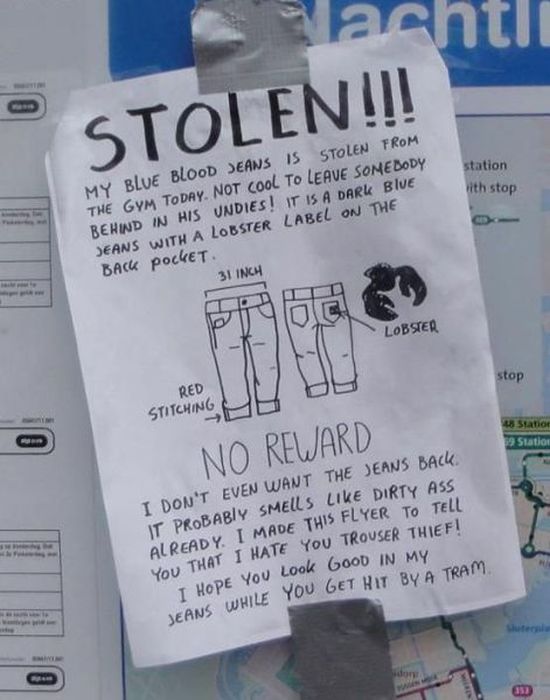 achtli
STOLEN!!!
MY BLUE BLOOD JEANS IS STOLEN FROM
THE GYM TODAY. NOT COOL TO LEAVE SOMEBODY
BEHIND IN HIS UNDIES! IT IS A DARK BLUE
JEANS WITH A LOBSTER LABEL ON THE
BACK POCKET.
31 INCH
LOBSTER
RED
STITCHING
NO REWARD
I DON'T EVEN WANT THE JEANS BACK.
IT PROBABLY SMELLS LIKE DIRTY ASS
ALREADY. I MADE THIS FLYER TO TELL
YOU THAT I HATE YOU TROUSER THIEF!
I HOPE YOU LOOK GOOD IN MY
JEANS WHILE YOU GET HIT BY A TRAM.
station
with stop
stop
48 Station
69 Station
Sloterpla
353